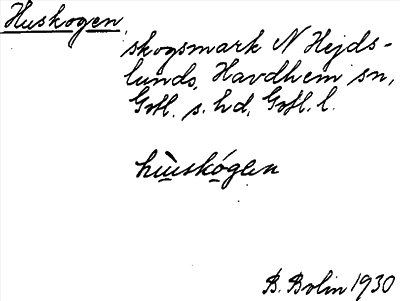 Huskogen,
skogsmark N Hejds-
lunds, Havdhem sn,
Gotl. s. hd, Gotl. l.
hùuskógen
B. Bolin 1930